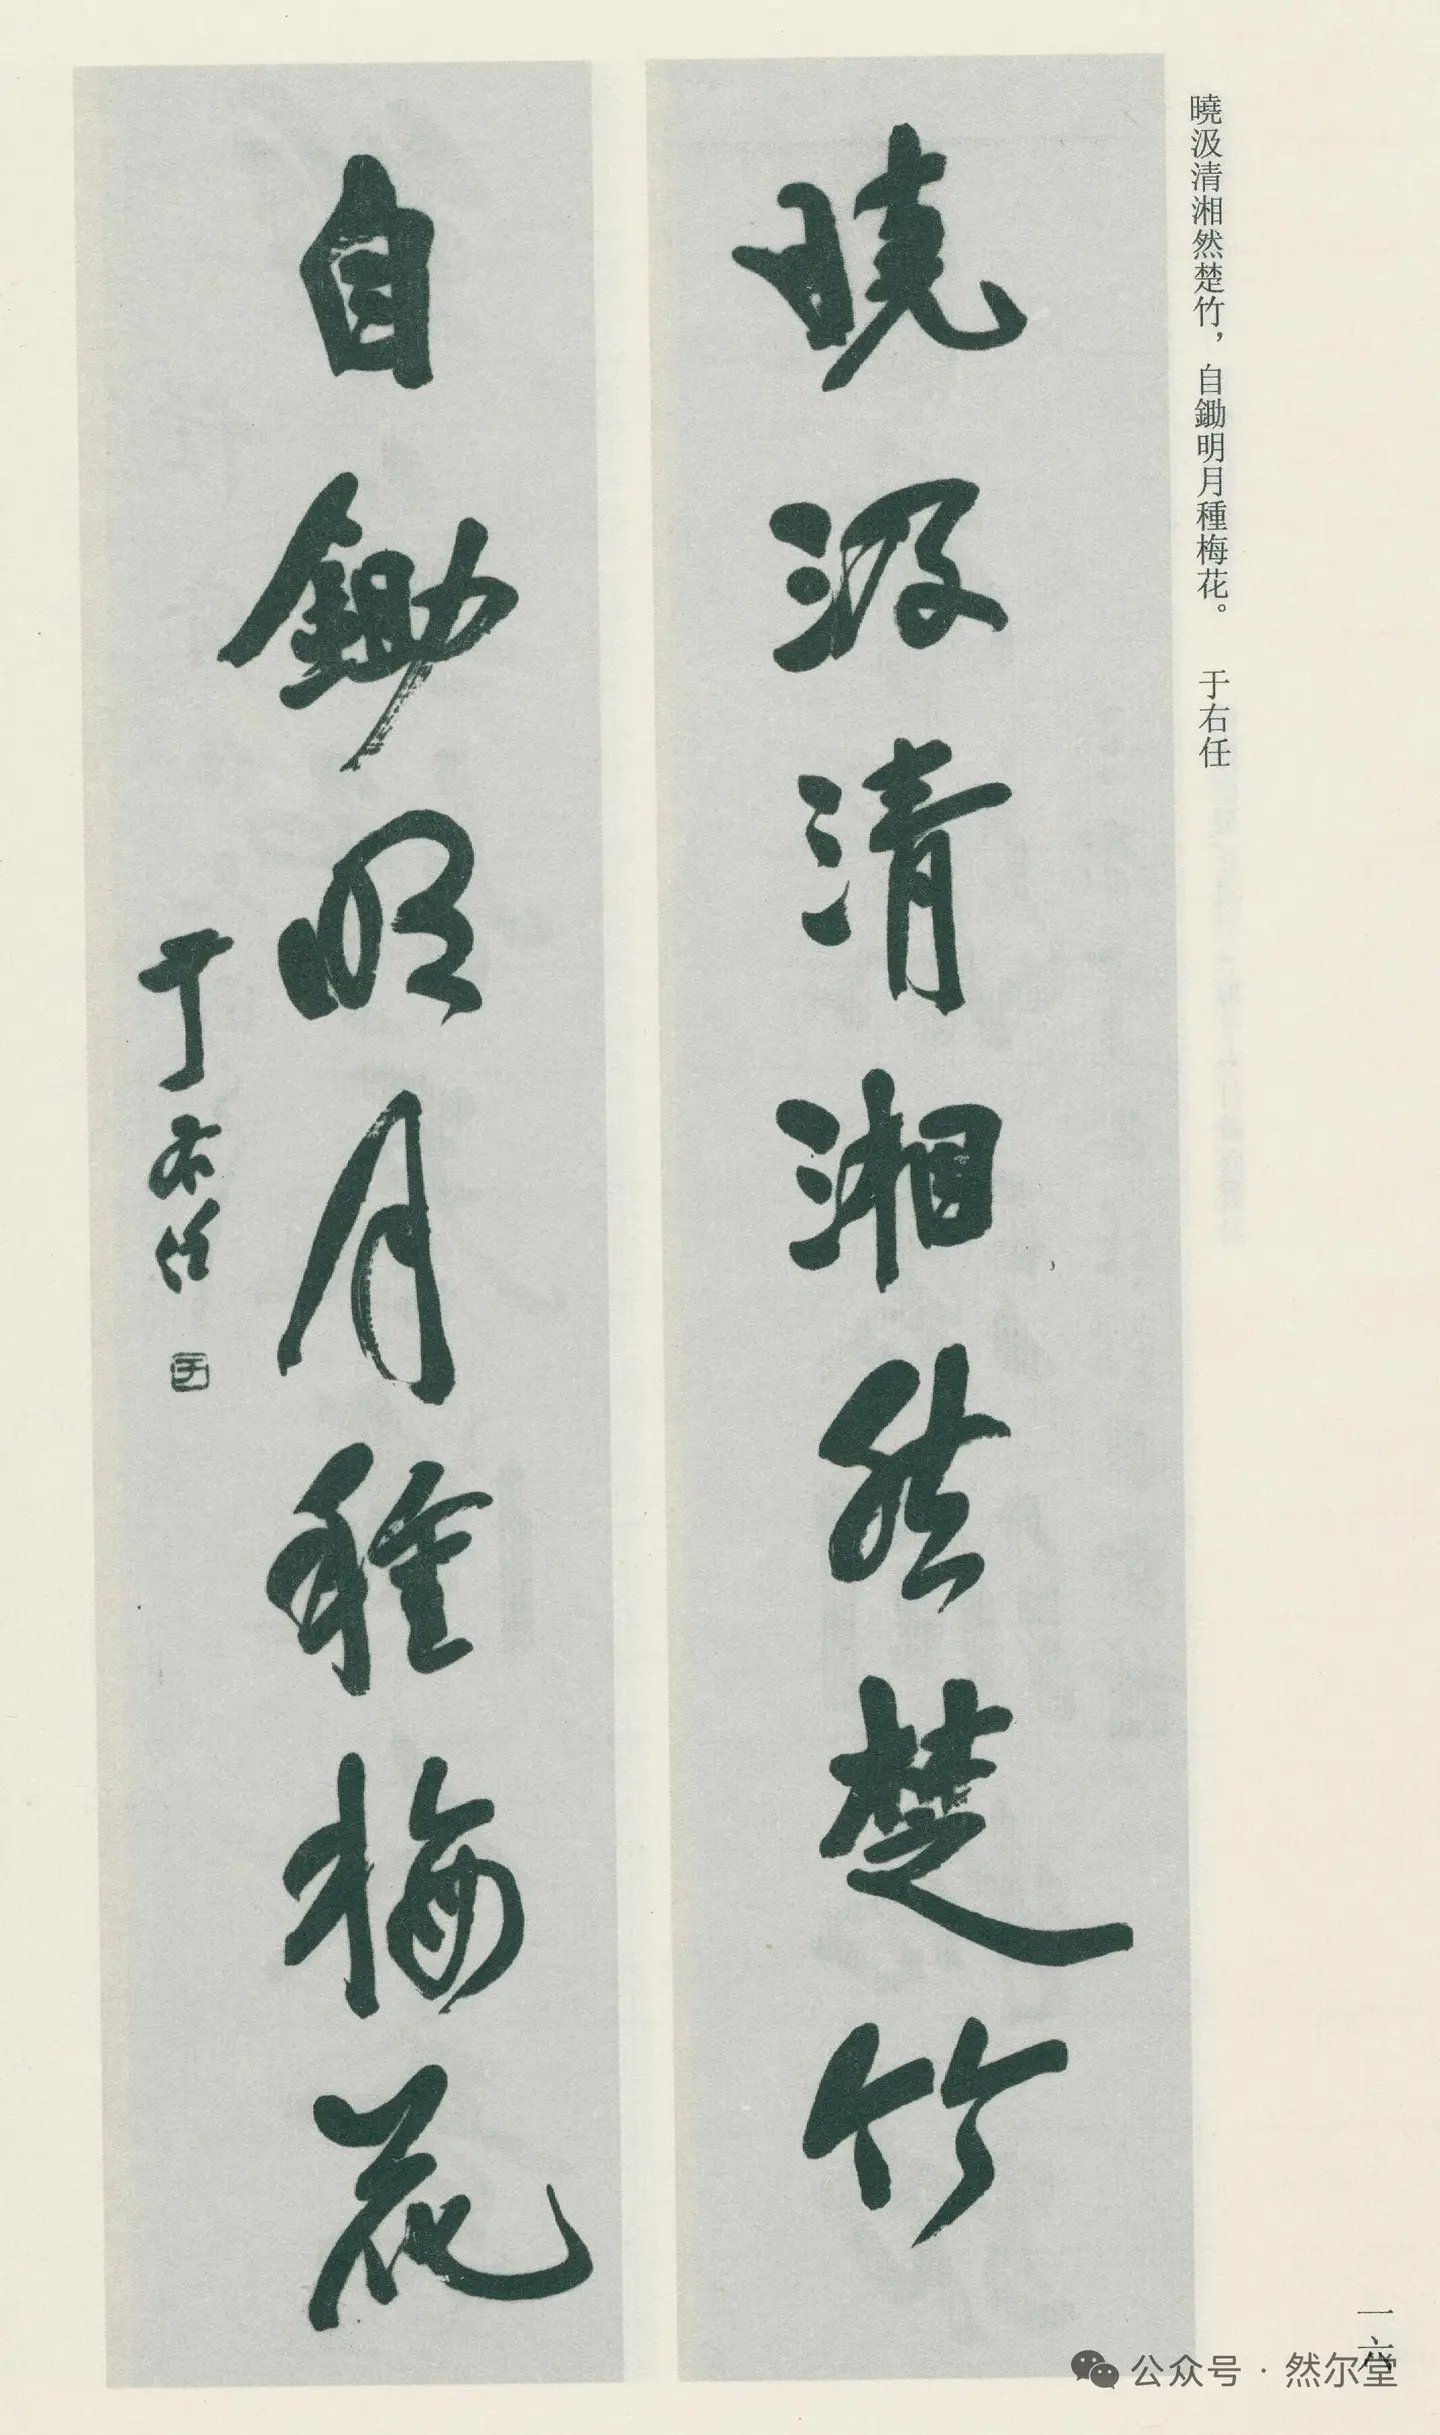 曉汲清湘然楚竹，自鋤明月種梅花。　于右任
曉汲清湘然楚竹
自鋤明月種梅花
于右任
于
一六
公众号 · 然尔堂